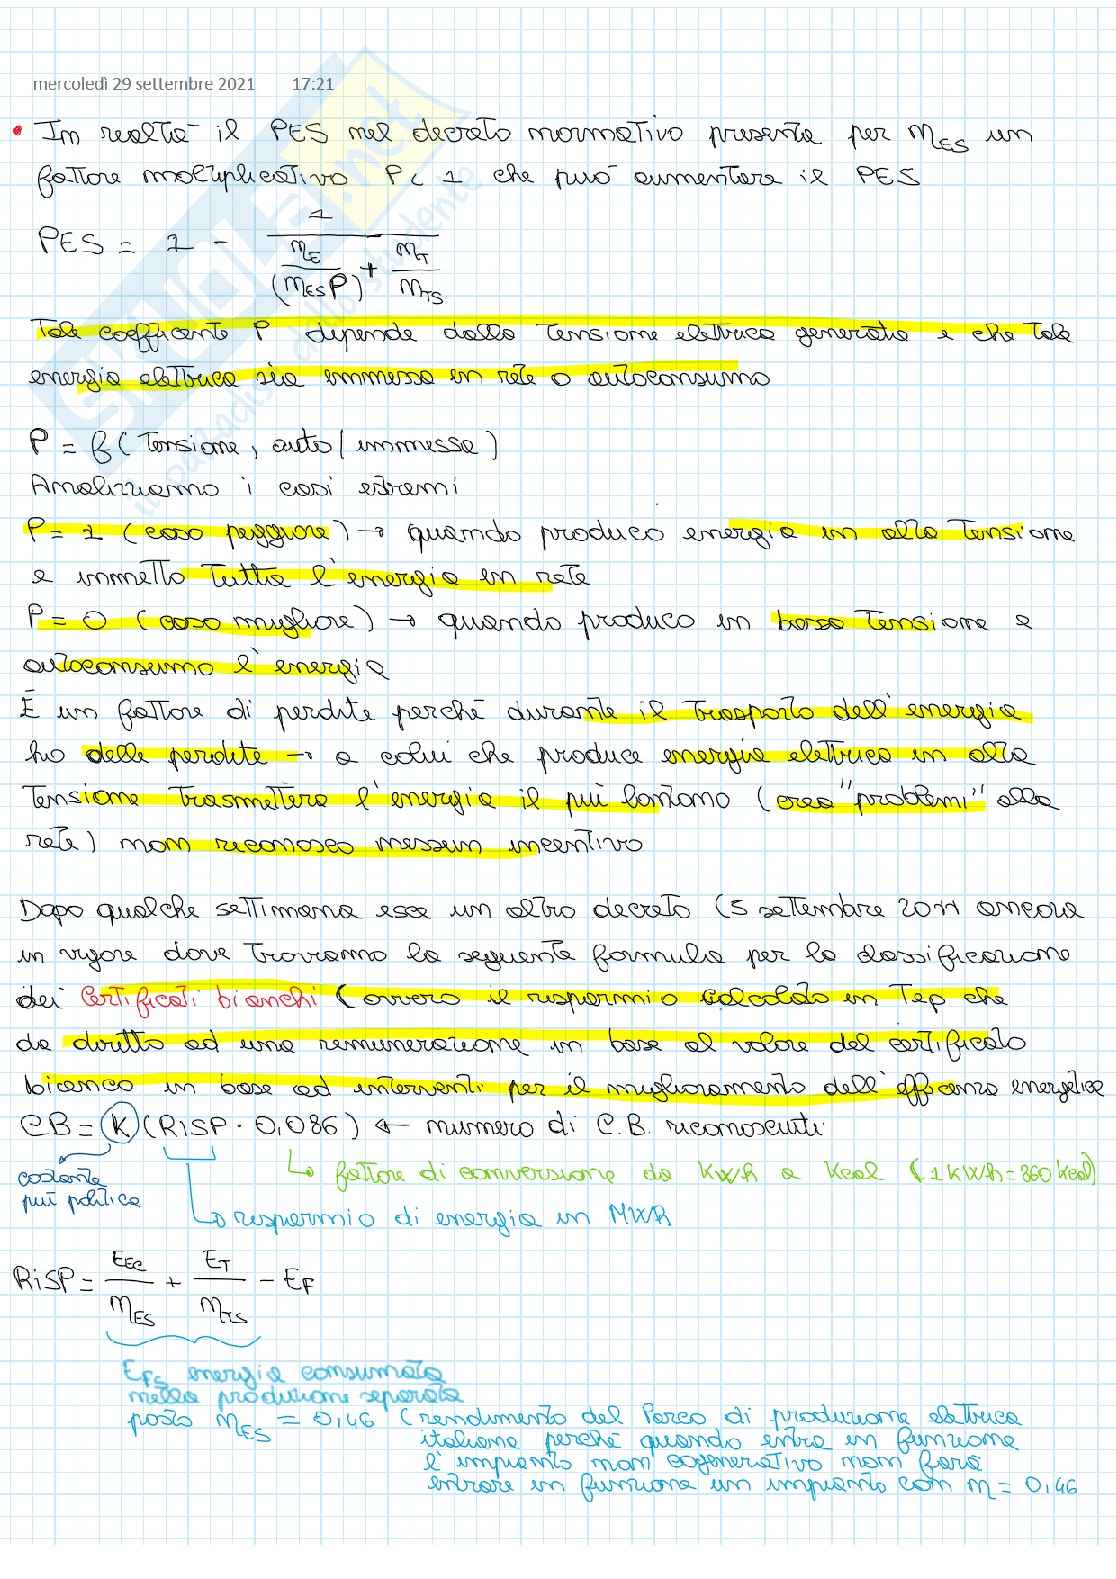 mercoledì 29 settembre 2021 17:21
• In realtà il PES nel decreto normativo presenta per η_ES un
fattore moltiplicativo P < 1 che può aumentare il PES
PES = 1 - 1 / (η_E / (η_ES P) + η_T / η_TS)
Tale coefficente P dipende dalla tensione elettrica generata e che tale
energia elettrica sia immessa in rete o autoconsumo
P = f ( tensione, auto / immessa )
Analizziamo i casi estremi
P = 1 ( caso peggiore ) → quando produco energia in alta tensione
e immetto tutta l'energia in rete
P = 0 ( caso migliore ) → quando produco in bassa tensione e
autoconsumo l'energia
È un fattore di perdite perché durante il trasporto dell'energia
ho delle perdite → a colui che produce energia elettrica in alta
tensione trasmettere l'energia il più lontano ( crea "problemi" alla
rete ) non riconosco nessun incentivo
Dopo qualche settimana esce un altro decreto ( 5 settembre 2011 ancora
in vigore dove troviamo la seguente formula per la classificazione
dei Certificati bianchi ( ovvero il risparmio calcolato in Tep che
da diritto ad una remunerazione in base al valore del certificato
bianco in base ad interventi per il miglioramento dell'efficenza energetica
CB = K ( RISP · 0,086 ) ← numero di C.B. riconosciuti
costante
più politica
↳ fattore di conversione da KWh a Kcal ( 1 KWh = 860 Kcal )
↳ risparmio di energia in MWh
RISP = E_EC / η_ES + E_T / η_TS - E_F
E_FS energia consumata
nella produzione separata
posto η_ES = 0,46 ( rendimento del Parco di produzione elettrica
italiano perché quando entra in funzione
l'impianto non cogenerativo non farà
entrare in funzione un impianto con η = 0,46
SKUOLA.net
il paradiso dello studente